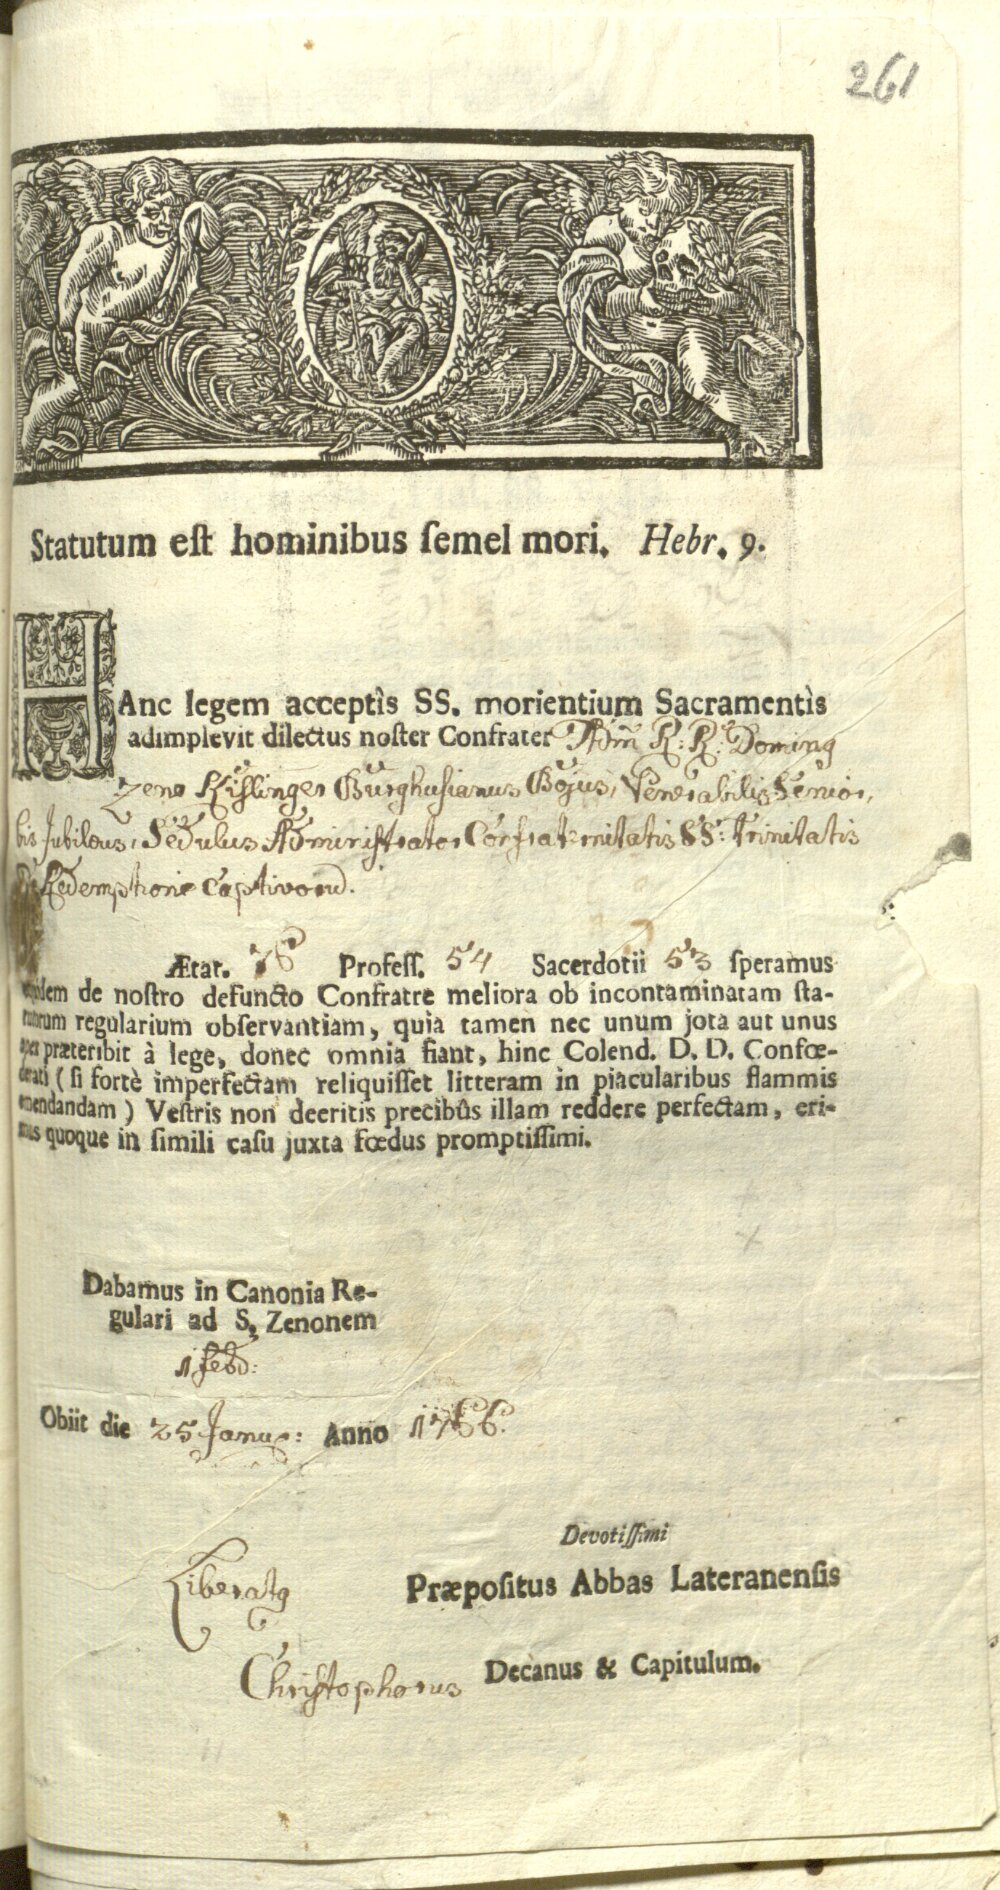 261
Statutum est hominibus ſemel mori. Hebr. 9.
HAnc legem acceptìs SS. morientium Sacramentìs
adimplevit dilectus noſter Confrater Adm̄ R: R: Doming
Zeno Kislinger Burghusianus Bojus, Venerabilis Senior,
bis Jubilæus, Sedulus Administrator Confraternitatis SS: Trinitatis
Redemptione Captivorū.
Ætat. 76 Profeſſ. 54 Sacerdotii 53 ſperamus
quidem de noſtro defuncto Confratre meliora ob incontaminatam ſta-
tutorum regularium obſervantiam, quia tamen nec unum jota aut unus
apex præteribit à lege, donec omnia fiant, hinc Colend. D. D. Confœ-
derati (ſi fortè imperfectam reliquiſſet litteram in piacularibus flammis
emendandam) Veſtris non deeritis precibûs illam reddere perfectam, eri-
mus quoque in ſimili caſu juxta fœdus promptiſſimi.
Dabamus in Canonia Re-
gulari ad S. Zenonem
1 feb:
Obiit die 25 Januar: Anno 1766.
Devotiſſimi
Liberatg Præpoſitus Abbas Lateranenſis
Christophorus Decanus & Capitulum.